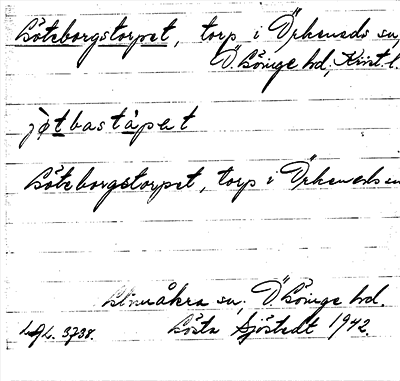 Göteborgstorpet, torp i Örkeneds sn,
Ö. Göinge hd, Krist. l.
jøtbaståpet
Göteborgstorpet, torp i Örkeneds sn
Glimåkra sn. Ö. Göinge hd.
Gösta Sjöstedt 1942.